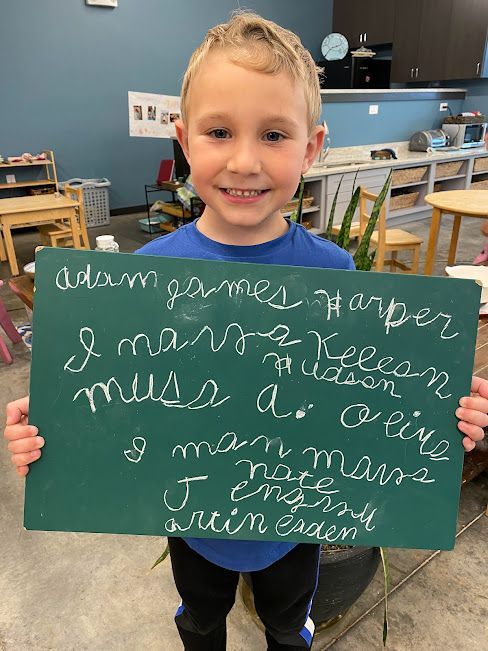 adam james Harper
I narra Keeeon
Hudson
muss a. oeiva
I man mars
nate
J
artin eaden